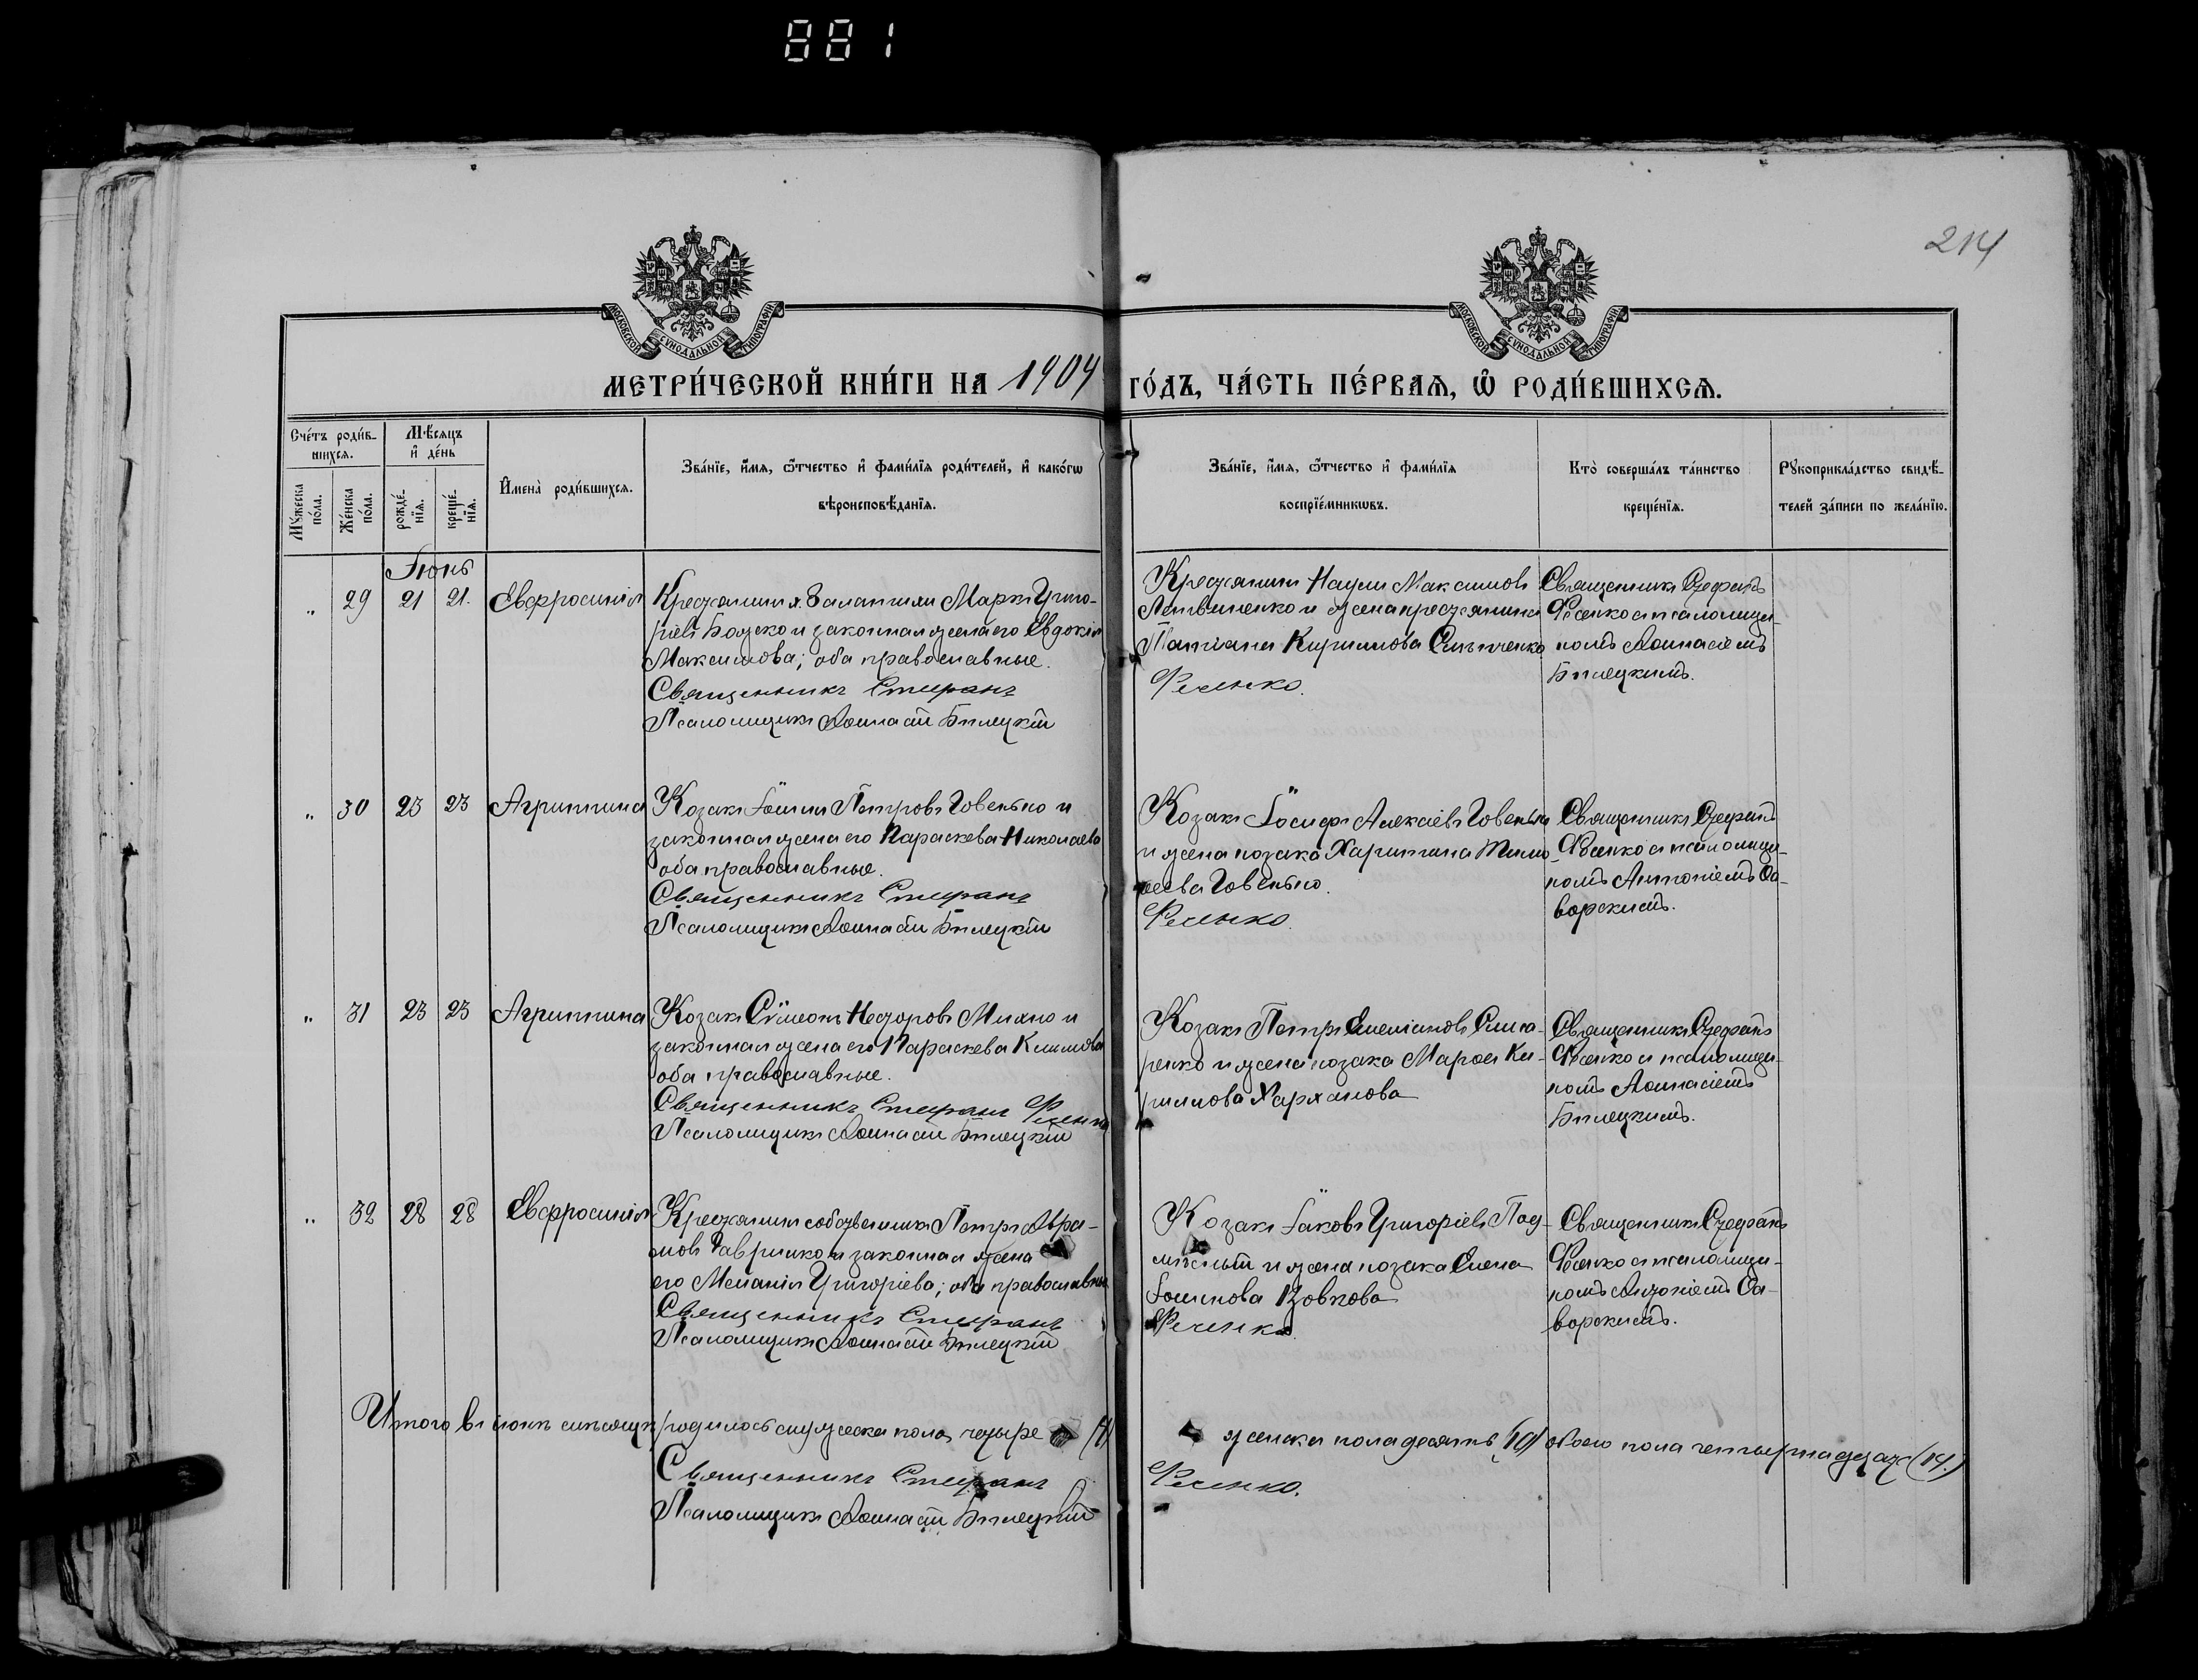 881
214
МОСКОВСКОЙ СѴНОДАЛЬНОЙ ТИПОГРАФІИ
МОСКОВСКОЙ СѴНОДАЛЬНОЙ ТИПОГРАФІИ
МЕТРИ́ЧЕСКОЙ КНИ́ГИ НА 1904 ГО́ДЪ, ЧА́СТЬ ПЕ́РВАѦ, Ѡ҆ РОДИ́ВШИХСѦ.
Сче́тъ роди́в-
шихсѧ.
Мꙋ́жеска по́ла.
Же́нска по́ла.
Мѣ́сяцъ
и҆ де́нь
рожде́-нїѧ.
креще́-нїѧ.
И҆мена̀ роди́вшихсѧ.
Зва́нїе, и҆́мѧ, ѿ́тчество и҆ фами́лїѧ роди́телей, и҆ како́гѡ
вѣроисповѣ́данїѧ.
Зва́нїе, и҆́мѧ, ѿ́тчество и҆ фами́лїѧ
воспрїе́мникѡвъ.
Кто̀ соверша́лъ та́инство
креще́нїѧ.
Рꙋкоприкла́дство свидѣ́-
телей за́писи по жела́нїю.
Іюнь
„ 29 21 21. Евфросинія
Маркъ Григо-
ріевъ Божко и законная жена его Евдокія
Максимова; оба православные.
Священникъ Стефанъ
Псаломщикъ Аѳанасій Билецкій
Крестьянинъ Наумъ Максимовъ
Литвиненко и жена крестьянина
Татіана Кириллова
Фесенко.
Священникъ Стефанъ
Фесенко съ псаломщи-
комъ Аѳанасіемъ
Билецкимъ.
„ 30 23 23 Агриппина
Козакъ Іоаннъ Петровъ Говенько и
законная жена его Параскева Николаева
оба православные.
Священникъ Стефанъ
Псаломщикъ Аѳанасій Билецкій
Козакъ Іосифъ Алексіевъ Говенько
и жена козака Харитина Тимо-
ѳеева Говенько.
Фесенко.
Священникъ Стефанъ
Фесенко съ псаломщи-
комъ Антоніемъ Са-
ворскимъ.
„ 31 23 23 Агриппина
Козакъ Сѵмеонъ Ѳедоровъ Михно и
законная жена его Параскева Климова
оба православные.
Священникъ Стефанъ Фесенко
Псаломщикъ Аѳанасій Билецкій
Козакъ Петръ
и жена козака Марѳа Ки-
риллова Харламова
Священникъ Стефанъ
Фесенко съ псаломщи-
комъ Аѳанасіемъ
Билецкимъ.
„ 32 28 28 Евфросинія
Крестьянинъ собственникъ Петръ Авра-
мовъ Гавришко и законная жена
его Меланія Григоріева; оба православные
Священникъ Стефанъ
Псаломщикъ Аѳанасій Билецкій
Козакъ Іаковъ Григоріевъ Под-
и жена козака Елена
Іоаннова Вовкова
Фесенко.
Священникъ Стефанъ
Фесенко съ псаломщи-
комъ Антоніемъ Са-
ворскимъ.
Итого въ іюнѣ мѣсяцѣ родилось мужеска пола четыре (4) женска пола десять (10) обоего пола четырнадцать (14.)
Священникъ Стефанъ
Фесенко.
Псаломщикъ Аѳанасій Билецкій